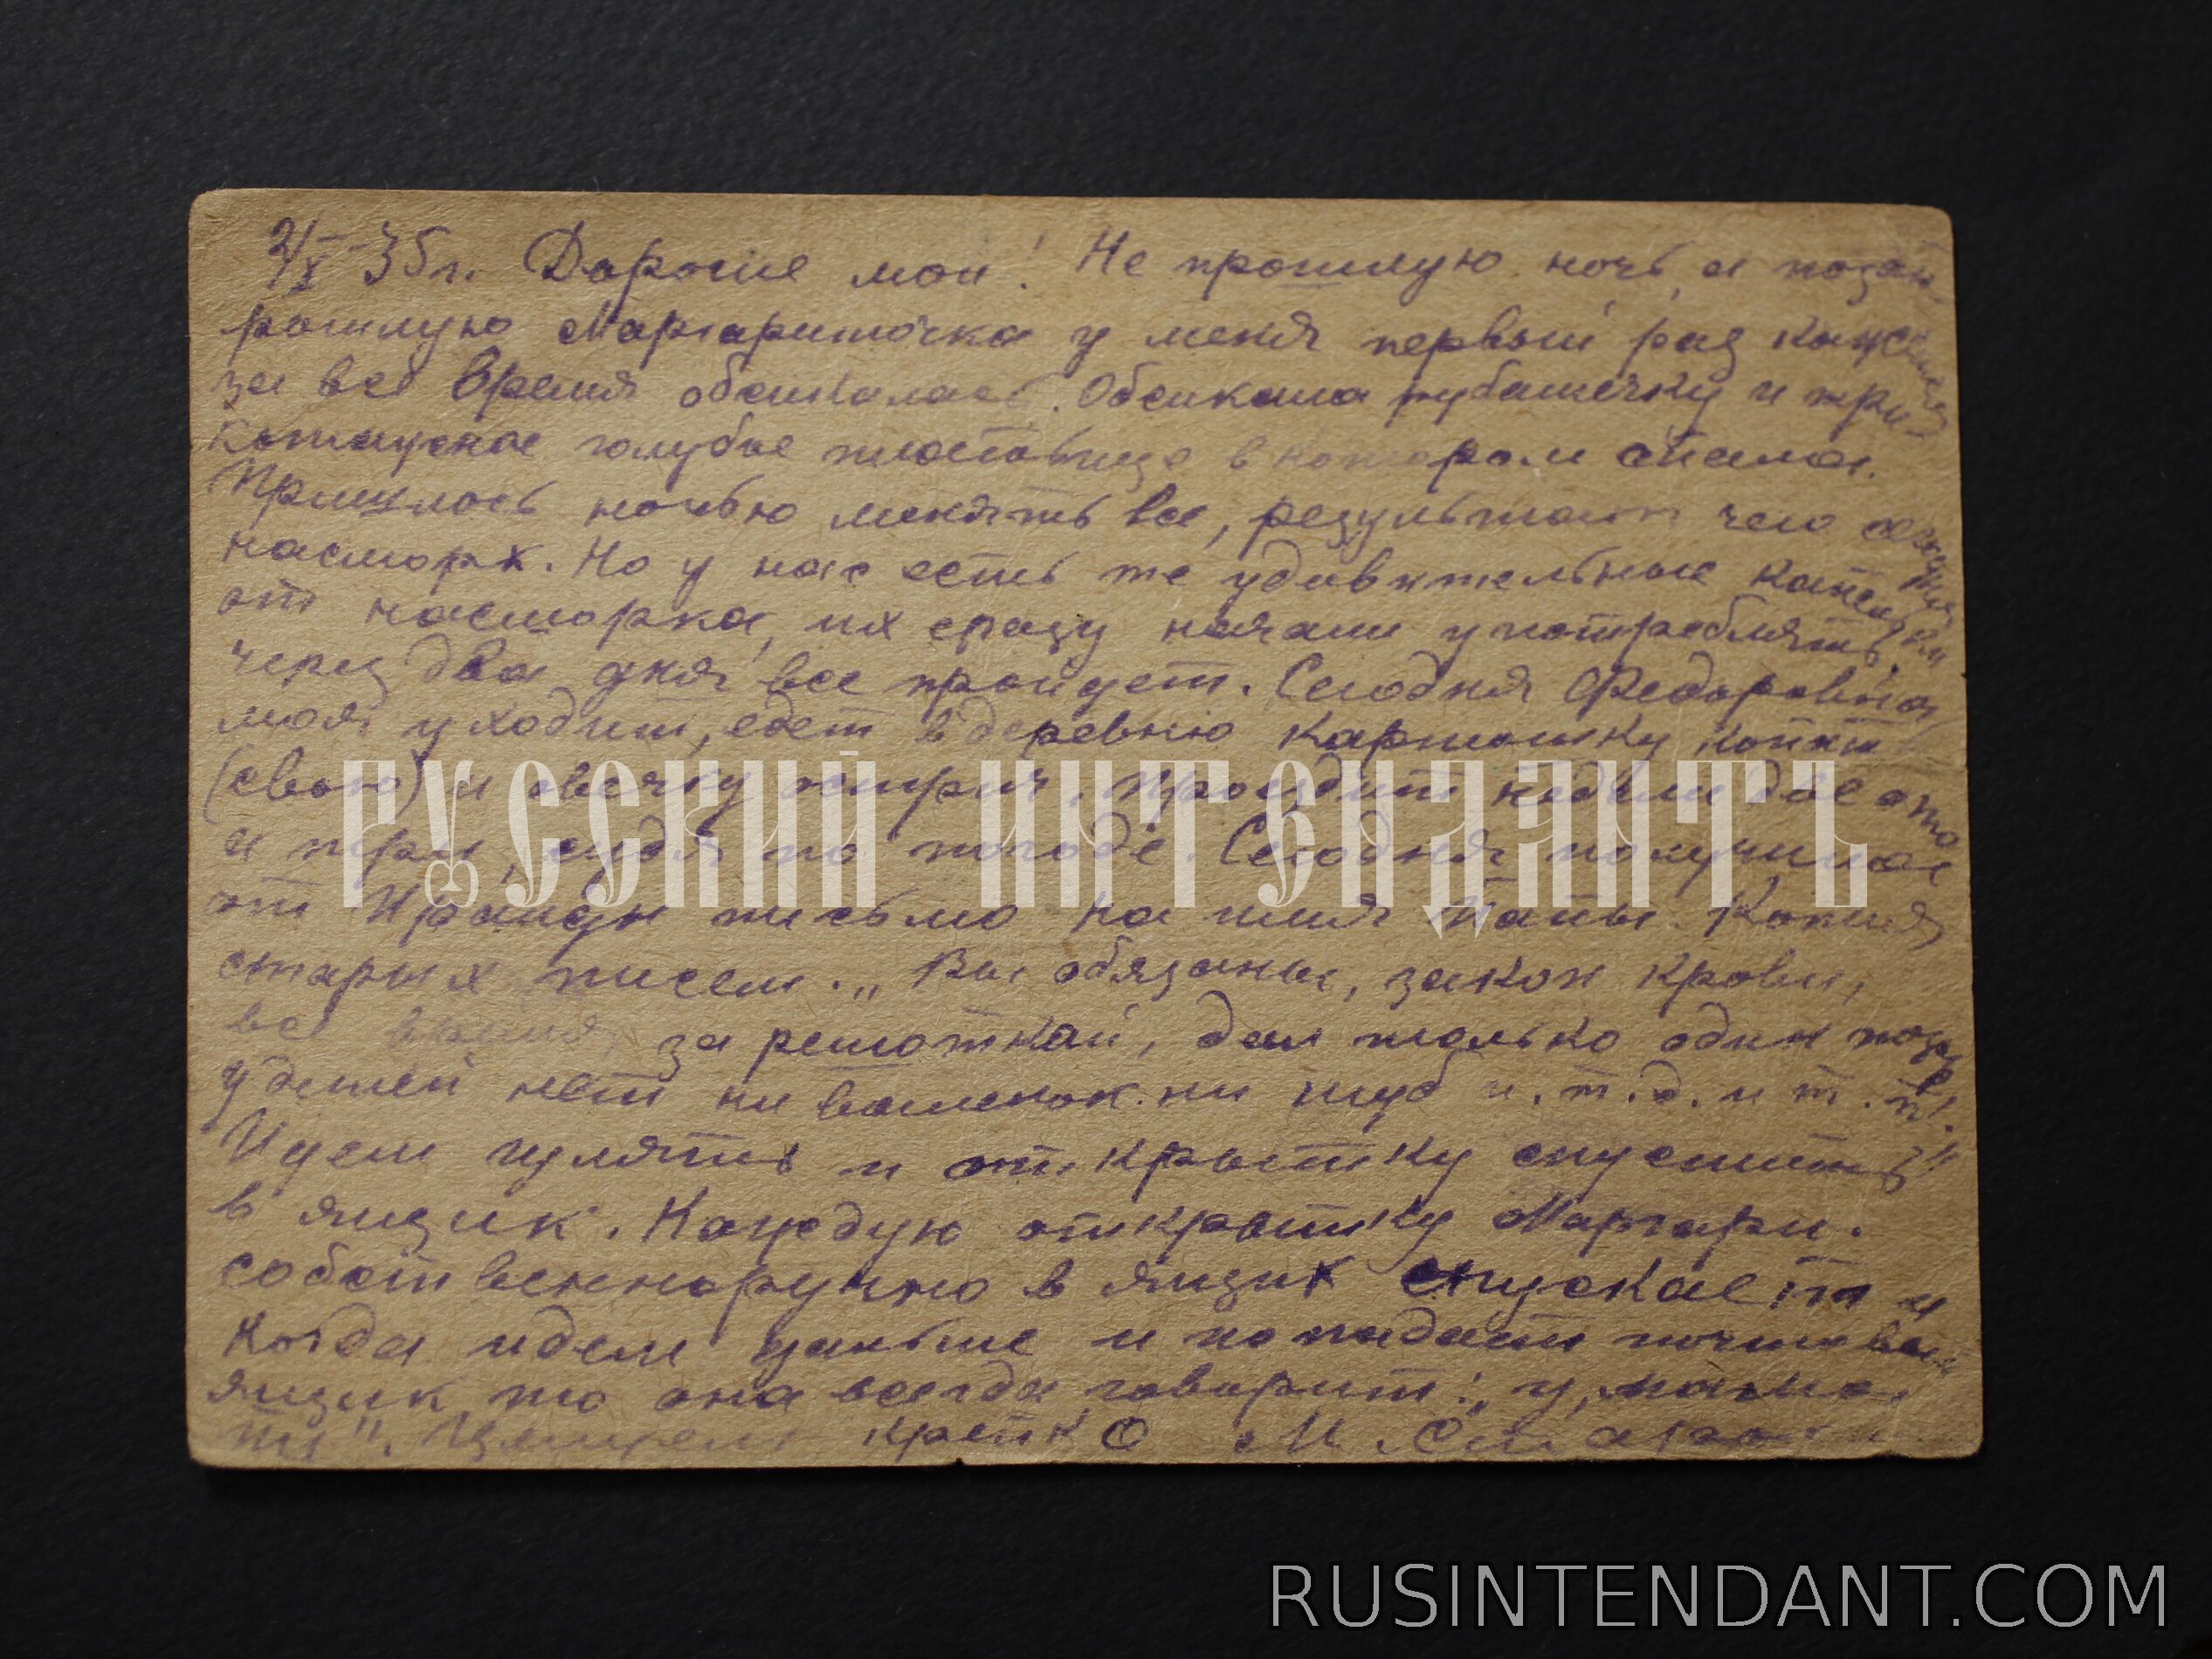 2/X 35 г. Дорогие мои! Не прошлую ночь, а позап
рошлую Маргариточка у меня первый раз кажется
за все время обсикалась. Обсикала рубашечку и
голубое в котором спала.
Пришлось ночью менять все, результат чего
насморк. Но у нас есть те удивительные капельки
от насморка, их сразу начали употреблять.
через два дня все пройдет. Сегодня Федоровна
моя уходит, едет в деревню картошку копать
(свою) и овечку Проездит недели две а то
и три, судя по погоде. Сегодня получила
от Ираиды письмо на имя Папы. Копия
старых писем. „Вы обязаны, закон крови,
все время за решоткой, дал только один позор,
у детей нет ни валенок ни шуб и.т.д. и т.п!"
Идем гулять и открытку спустить
в ящик. Каждую открытку Маргари.
собственноручно в ящик спускает и
когда идем дальше и попадает почтовый
ящик то она всегда говорит: „у,
ти". Целуем крепко М.
РУССКИЙ ИНТЕНДАНТЪ
RUSINTENDANT.COM